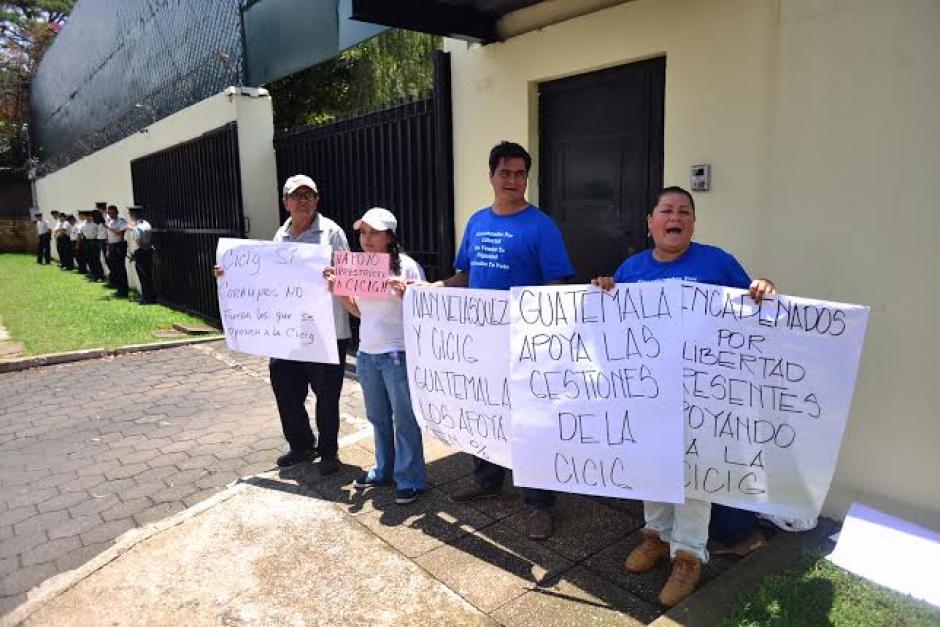 CICIG SÍ
CORRUPTOS NO
FUERA LOS QUE SE
OPONEN A LA CICIG
APOYO
A CICIG!!
VELÁSQUEZ
Y CICIG
GUATEMALA
LOS APOYA
%
GUATEMALA
APOYA LAS
GESTIONES
DE LA
CICIG
ENCADENADOS
POR
LIBERTAD
PRESENTES
APOYANDO
A LA
CICIG
Encadenados Por
Libertad